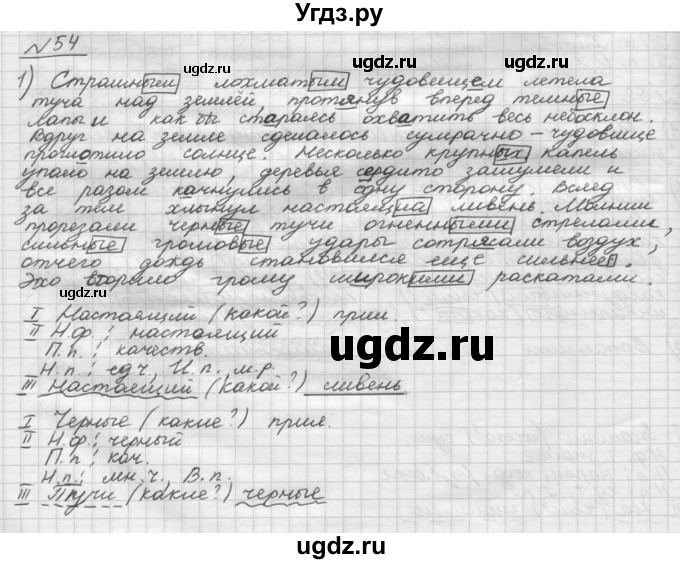 Угдз.ру
№54
1) Страшным лохматым чудовищем летела
туча над землёй, протянув вперед темные
лапы и как бы стараясь охватить весь небосклон.
Вдруг на земле сделалось сумрачно – чудовище
проглотило солнце. Несколько крупных капель
упало на землю, деревья сердито зашумели и
все разом качнулись в одну сторону. Вслед
за тем хлынул настоящий ливень. Молнии
прорезали черные тучи огненными стрелами,
сильные громовые удары сотрясали воздух,
отчего дождь становился еще сильнее.
Эхо вторило грому широкими раскатами.
I Настоящий (какой?) прил.
II Н.ф.: настоящий
П.п.: качеств.
Н.п.: ед.ч., И.п., м.р.
III Настоящий (какой?) ливень
I Черные (какие?) прил.
II Н.ф.: черный
П.п: кач.
Н.п.: мн.ч., В.п.
III Тучи (какие?) черные
ugdz.ru
ugdz.ru
ugdz.ru
ugdz.ru
ugdz.ru
ugdz.ru
ugdz.ru
ugdz.ru